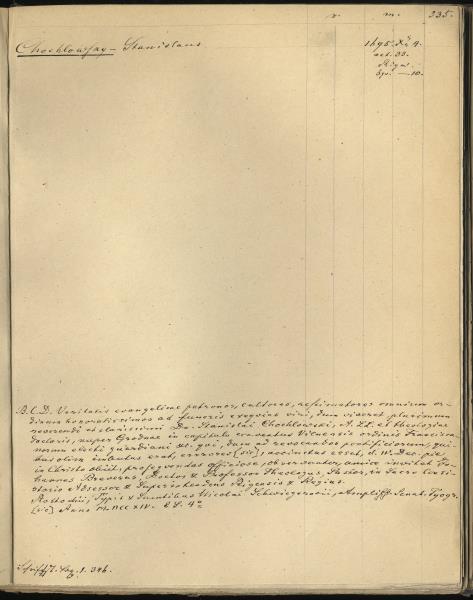 v. m. 235.
Chochlowsay - Stanislaus
1695. X 4.
aet. 33.
Riga
Sp. — 10.
B. C. D. Veritatis evangelicae patronos, cultores, aestimatores omnium or-
dinum honoratissimos ad funeris exequias viri, dum viveret plurimum
reverendi et clarissimi Dn. Stanislai Chochlowski, A. LL. et theologiae
Doctoris, nuper Grodnae in capitulo conventus Vilnensis ordinis Francisca-
norum electi guardiani &c. qui, dum ad revocandos pontificiorum, qui-
bus olim imbutus erat, errores [sic], accinctus esset, d. IV. Dec. pie
in Christo obiit, prosequendas officiose, observanter, amice invitat Jo-
hannes Breverus, Doctor & Professor Theologus, Pastor, in Sacro Consi-
storio Adsessor & Superintendens Rigensis & Regius.
Rostochii, Typis & Sumtibus Nicolai Schwiegerovii, Ampliss. Senat. Typogr.
[sic] Anno M. DCC XIV. 4°
1. 346.